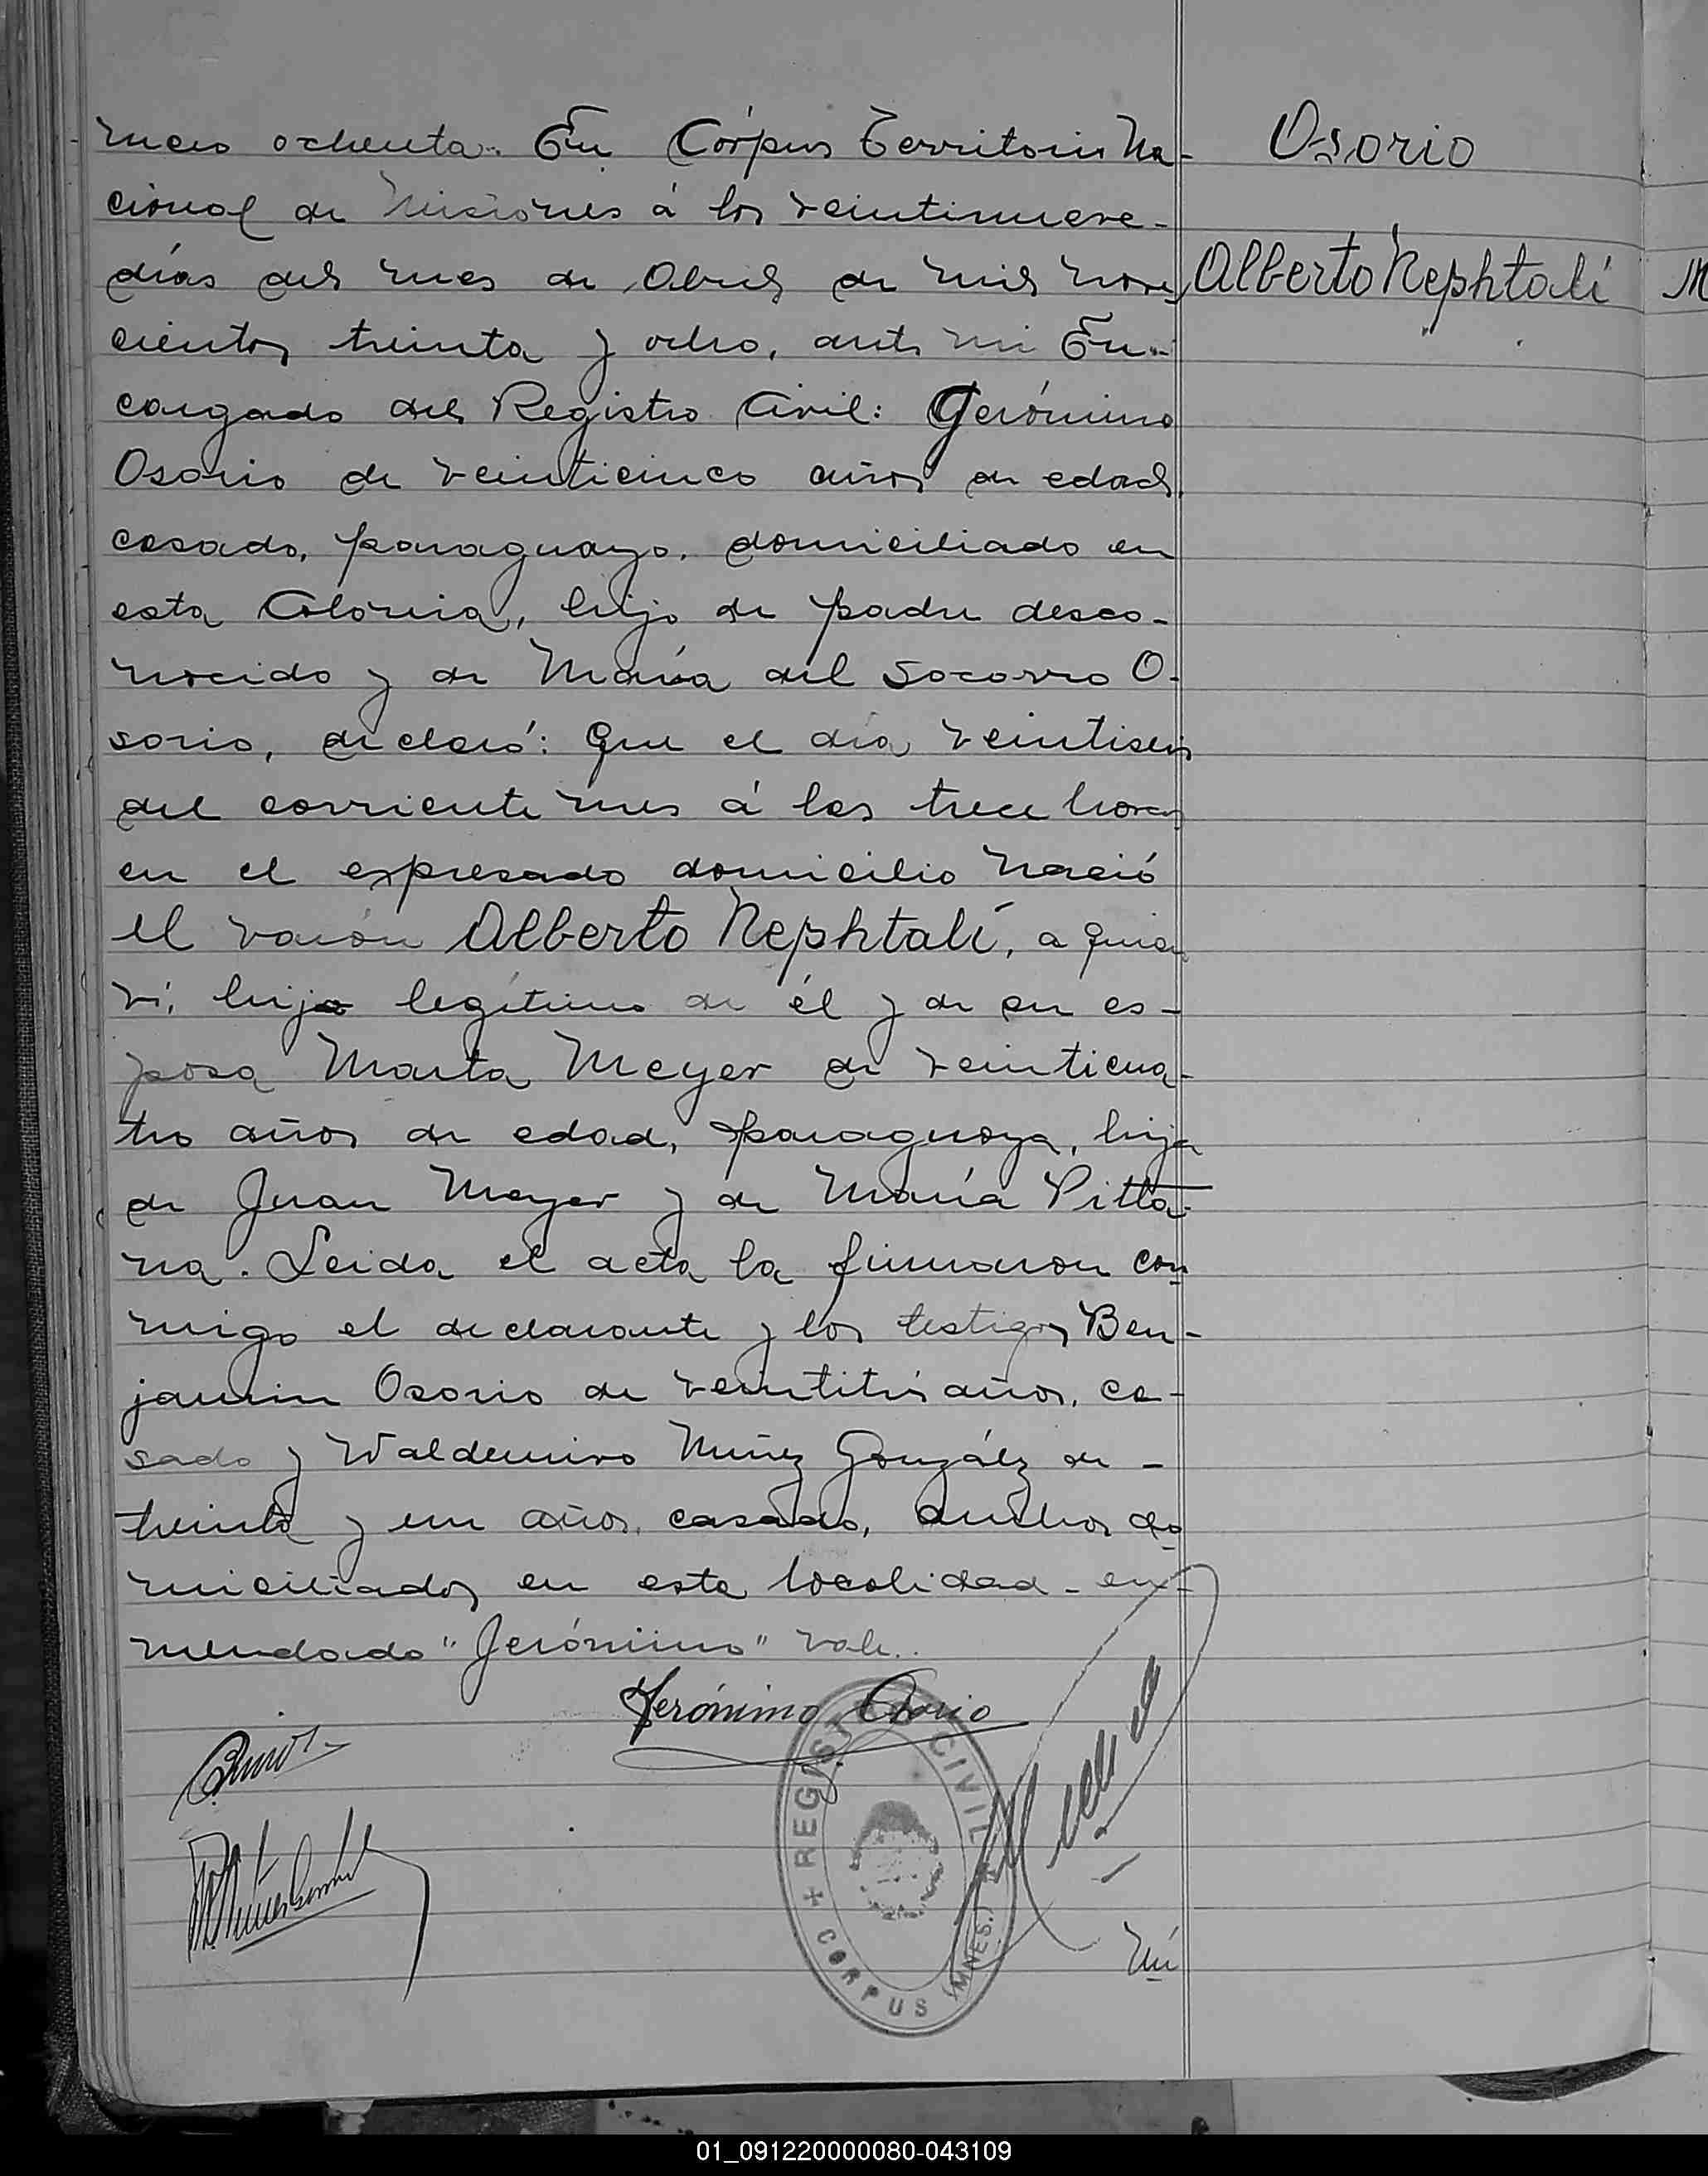 mero ochenta. En Córpus Territorio Na-
cional de Misiones á los veintinueve-
días del mes de Abril de mil nove
cientos treinta y ocho, ante mi En-
cargado del Registro Civil: Gerónimo
Osorio de veinticinco años de edad,
casado, paraguayo, domiciliado en
esta Colonia, hijo de padre desco-
nocido y de María del Socorro O-
sorio, declaró: Que el día veintiseis
del corriente mes á las trece horas
en el expresado domicilio nació
el varón Alberto Nephtalí, a quien
ví, hijo legítimo de él y de su es-
posa Marta Meyer de veinticua-
tro años de edad, paraguaya, hija
de Juan Meyer y de María Pitta-
na. Leida el acta la firmaron con
migo el declarante y los testigos Ben-
jamin Osorio de veintitrés años, ca-
sado y Waldemiro Nuñez González de -
treinta y un años, casado, ambos do
miciliados en esta localidad - en-
mendado "Jerónimo" vale..
Jerónimo Osorio
REGISTRO CIVIL
CORPUS (MNES.)
Nú
Osorio
Alberto Nephtalí
M
01_091220000080-043109